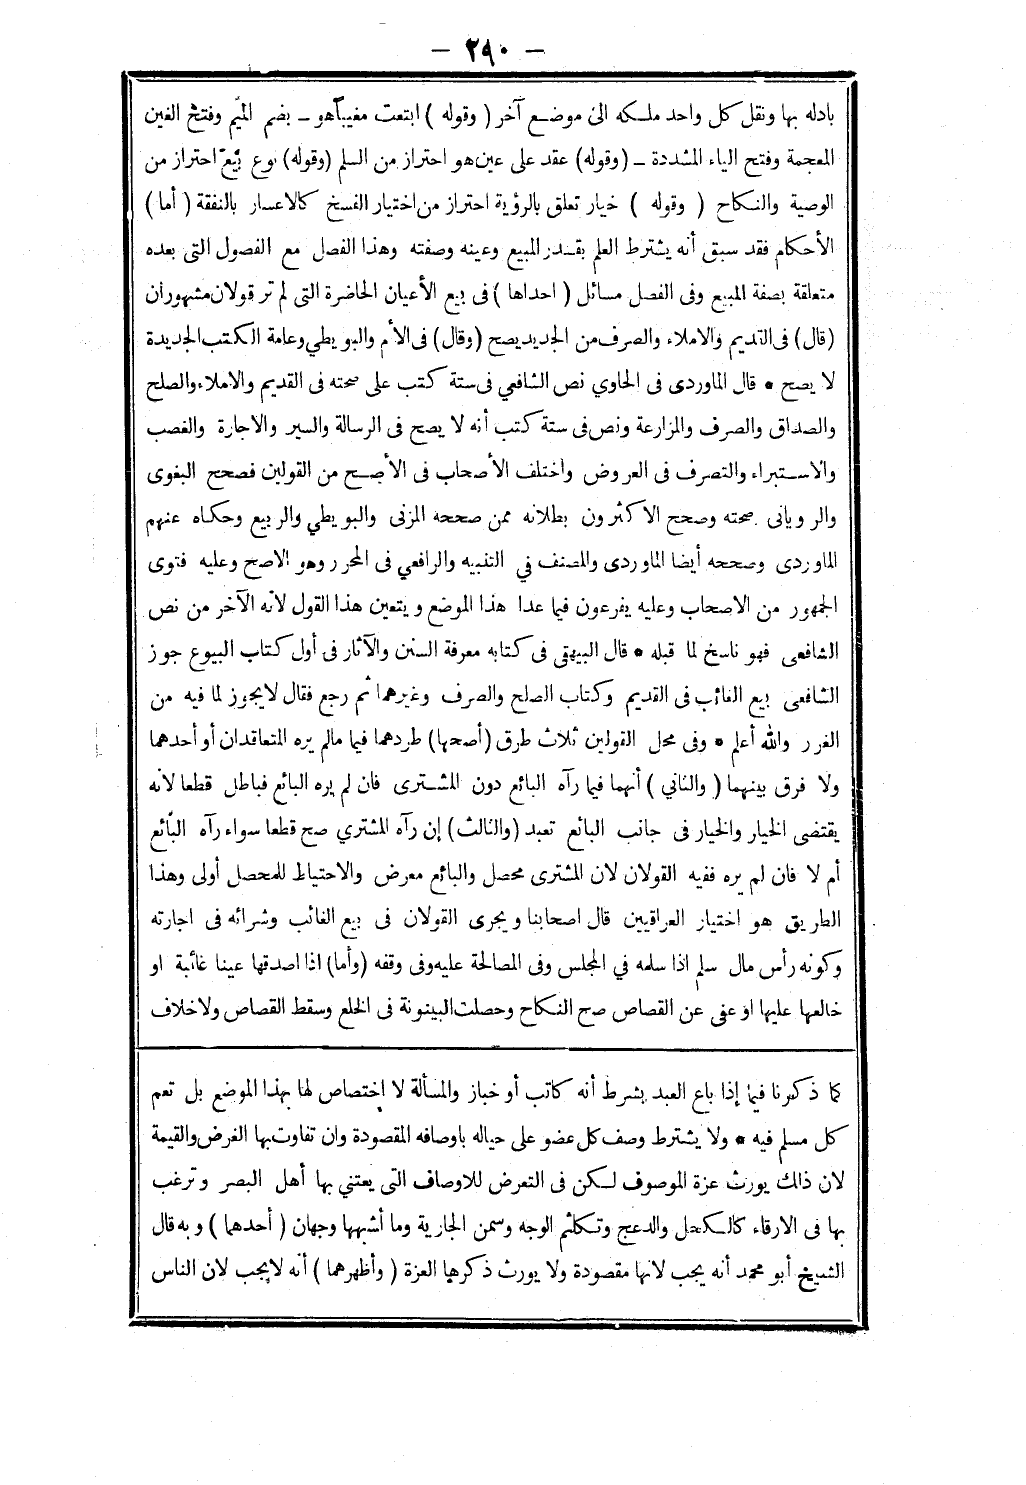 — ٢٩٠ —
بادله بها ونقل كل واحد ملكه الى موضع آخر ( وقوله ) ابتعت مغيباً هو ـ بضم الميم وفتح الغين
المعجمة وفتح الياء المشددة ـ (وقوله) عقد على عين هو احتراز من السلم (وقوله) نوع بيع احتراز من
الوصية والنكاح ( وقوله ) خيار تعلق بالرؤية احتراز من اختيار الفسخ كالاعسار بالنفقة ( أما )
الأحكام فقد سبق أنه يشترط العلم بقدر المبيع وعينه وصفته وهذا الفصل مع الفصول التى بعده
متعلقة بصفة المبيع وفى الفصل مسائل ( احداها ) فى بيع الأعيان الحاضرة التى لم تر قولان مشهوران
(قال) فى القديم والاملاء والصرف من الجديد يصح (وقال) فى الأم والبويطي وعامة الكتب الجديدة
لا يصح * قال الماوردى فى الحاوي نص الشافعي فى ستة كتب على صحته فى القديم والاملاء والصلح
والصداق والصرف والمزارعة ونص فى ستة كتب أنه لا يصح فى الرسالة والسير والاجارة والغصب
والاستبراء والتصرف فى العروض واختلف الأصحاب فى الأصح من القولين فصحح البغوى
والرويانى صحته وصحح الاكثرون بطلانه ممن صححه المزنى والبويطي والربيع وحكاه عنهم
الماوردى وصححه أيضا الماوردى والمصنف في التنبيه والرافعي فى المحرر وهو الاصح وعليه فتوى
الجمهور من الاصحاب وعليه يفرعون فيما عدا هذا الموضع ويتعين هذا القول لانه الآخر من نص
الشافعى فهو ناسخ لما قبله * قال البيهقى فى كتابه معرفة السنن والآثار فى أول كتاب البيوع جوز
الشافعى بيع الغائب فى القديم وكتاب الصلح والصرف وغيرهما ثم رجع فقال لا يجوز لما فيه من
الغرر والله أعلم * وفى محل القولين ثلاث طرق (أصحها) طردهما فيما مالم يره المتعاقدان أو أحدهما
ولا فرق بينهما ( والثاني ) أنهما فيما رآه البائع دون المشترى فان لم يره البائع فباطل قطعا لانه
يقتضى الخيار والخيار فى جانب البائع تعبد (والثالث) إن رآه المشتري صح قطعا سواء رآه البائع
أم لا فان لم يره ففيه القولان لان المشترى محصل والبائع معرض والاحتياط للمحصل أولى وهذا
الطريق هو اختيار العراقيين قال اصحابنا ويجرى القولان فى بيع الغائب وشرائه فى اجارته
وكونه رأس مال سلم اذا سلمه في المجلس وفى المصالحة عليه وفى وقفه (وأما) اذا اصدقها عينا غائبة او
خالعها عليها او عفى عن القصاص صح النكاح وحصلت البينونة فى الخلع وسقط القصاص ولا خلاف
كما ذكرنا فيما إذا باع العبد بشرط أنه كاتب أو خباز والمسألة لا اختصاص لها بهذا الموضع بل تعم
كل مسلم فيه * ولا يشترط وصف كل عضو على حياله باوصافه المقصودة وان تفاوت بها الغرض والقيمة
لان ذلك يورث عزة الموصوف لكن فى التعرض للاوصاف التى يعتني بها أهل البصر وترغب
بها فى الارقاء كالكحل والدعج وتكلثم الوجه وسمن الجارية وما أشبهها وجهان ( أحدهما ) وبه قال
الشيخ أبو محمد أنه يجب لانها مقصودة ولا يورث ذكرها العزة ( وأظهرهما ) أنه لا يجب لان الناس